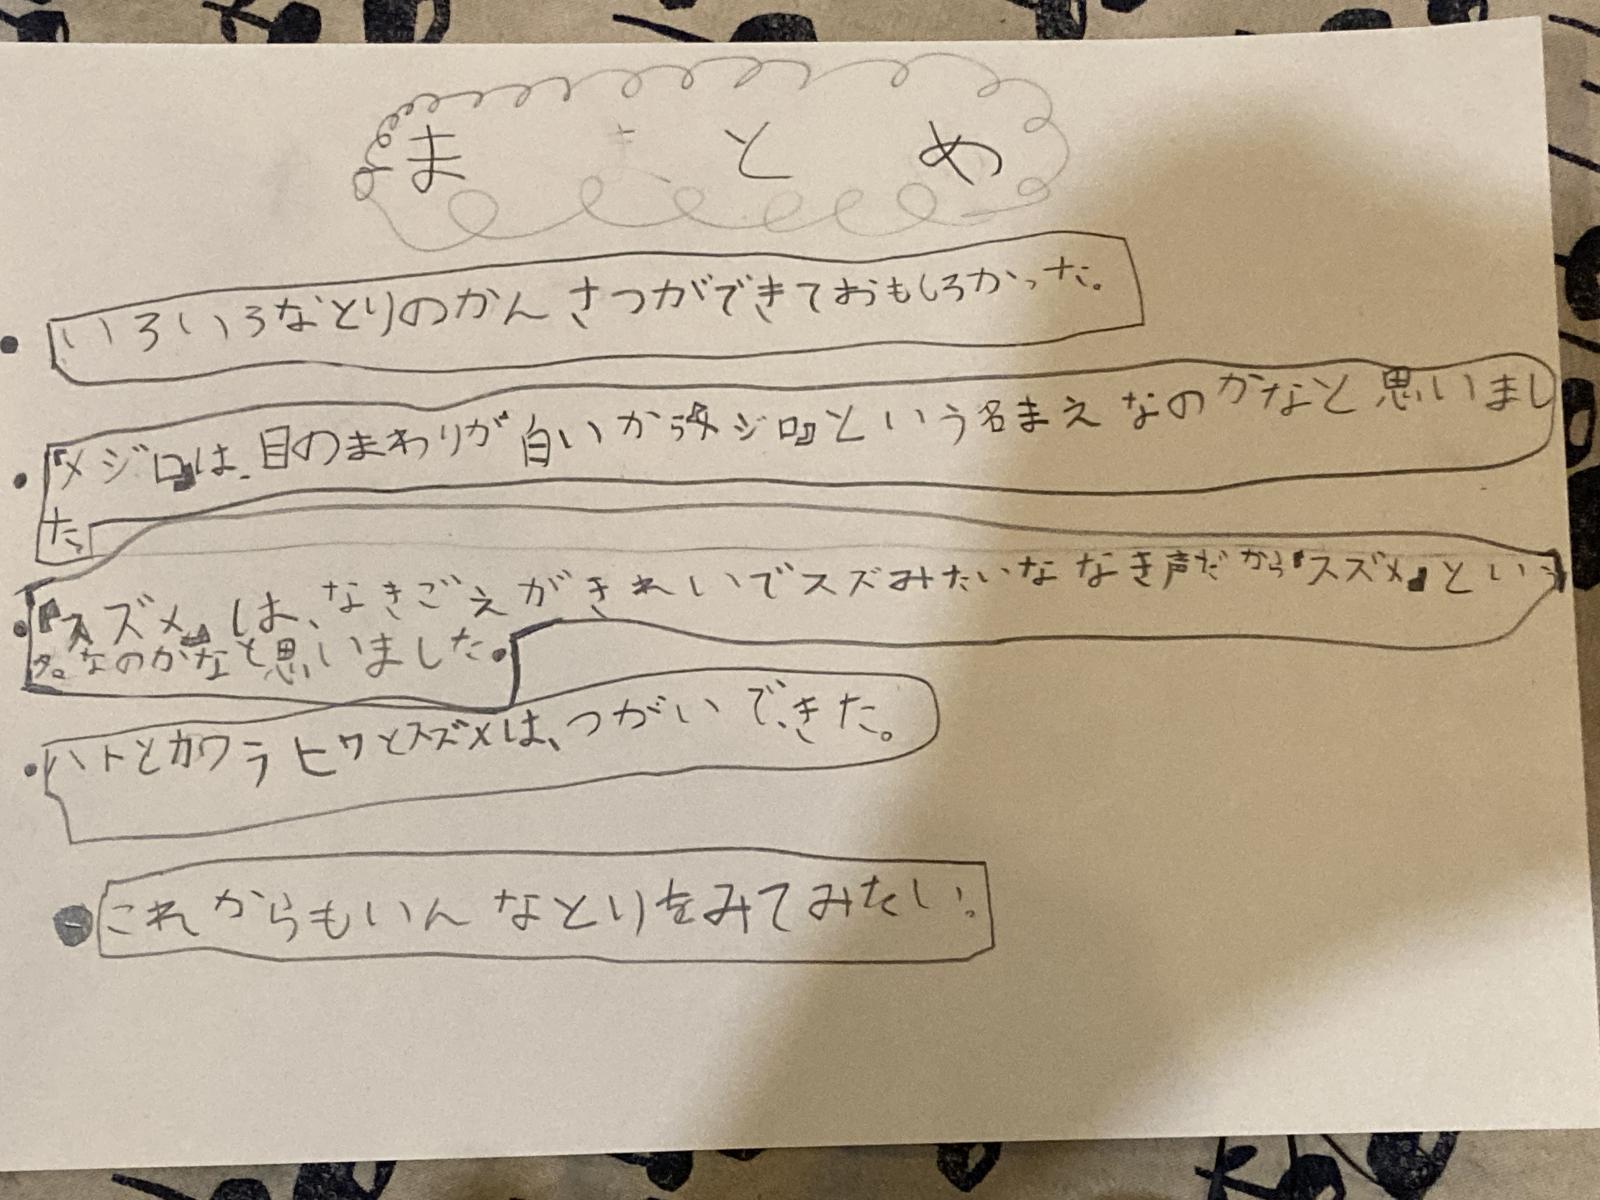 まとめ
・いろいろなとりのかんさつができておもしろかった。
・『メジロ』は、目のまわりが白いから『メジロ』という名まえなのかなと思いまし
た。
・『スズメ』は、なきごえがきれいでスズみたいななき声だから『スズメ』という
名なのかなと思いました。
・ハトとカワラヒワとスズメは、つがいできた。
・これからもいんなとりをみてみたい。